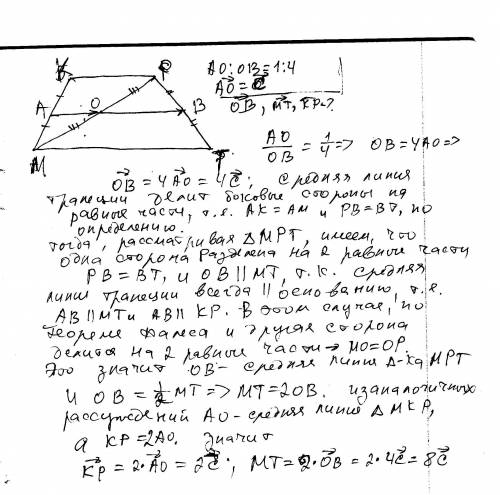 K P
A O B
M T
AO:OB=1:4
AO⃗ = C⃗
OB⃗, MT⃗, KP⃗-?
AO/OB = 1/4 => OB=4AO=>
OB⃗ = 4AO⃗ = 4C⃗; средняя линия
трапеции делит боковые стороны на
равные части, т.е. AK=AM и PB=BT, по
определению.
Тогда, рассматривая ΔMPT, имеем, что
одна сторона разделена на 2 равные части
PB=BT, и OB||MT, т.к. средняя
линия трапеции всегда || основанию, т.е.
AB||MT и AB||KP. В этом случае, по
теореме Фалеса и другая сторона
делится на 2 равные части → MO=OP.
Это значит OB- средняя линия Δ-ка MPT
и OB = 1/2 MT => MT=2OB. из аналогичных
рассуждений AO-средняя линия ΔMKP,
а KP=2AO. значит
KP⃗ = 2·AO⃗ = 2C⃗; MT=2·OB⃗ = 2·4C⃗ = 8C⃗